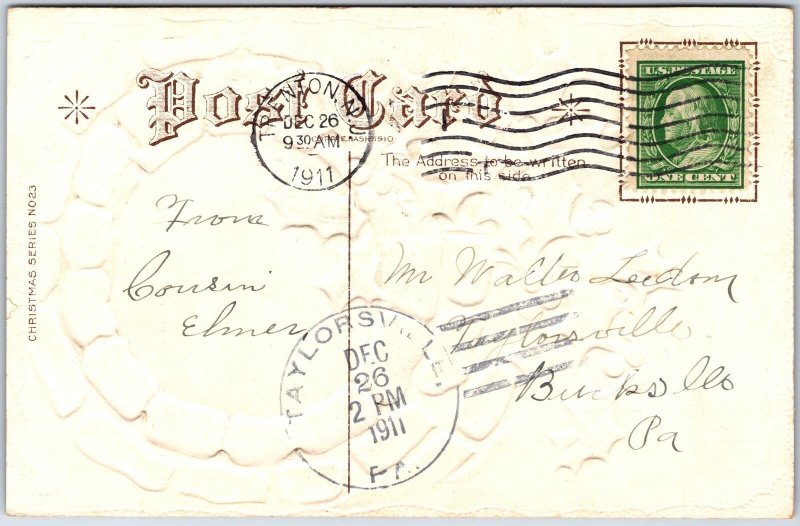 Post Card
TRENTON, N.J.
DEC 26
9 30 AM
1911
The Address to be written
on this side
U.S. POSTAGE
ONE CENT
CHRISTMAS SERIES NO 23
From
Cousin
Elmer
Mr Walter Leedom
Taylorsville
Bucks Co
Pa
TAYLORSVILLE,
DEC
26
2 PM
1911
PA.